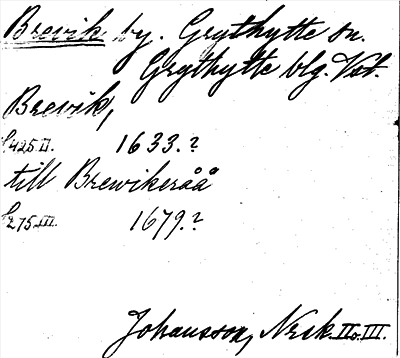 Brevik by. Grythytte sn.
Grythytte blg. Vst.
Brevik,
s. 425 II. 1633.?
till Brewikeråå
s. 275 III. 1679.?
Johansson, Norsk. II o. III.